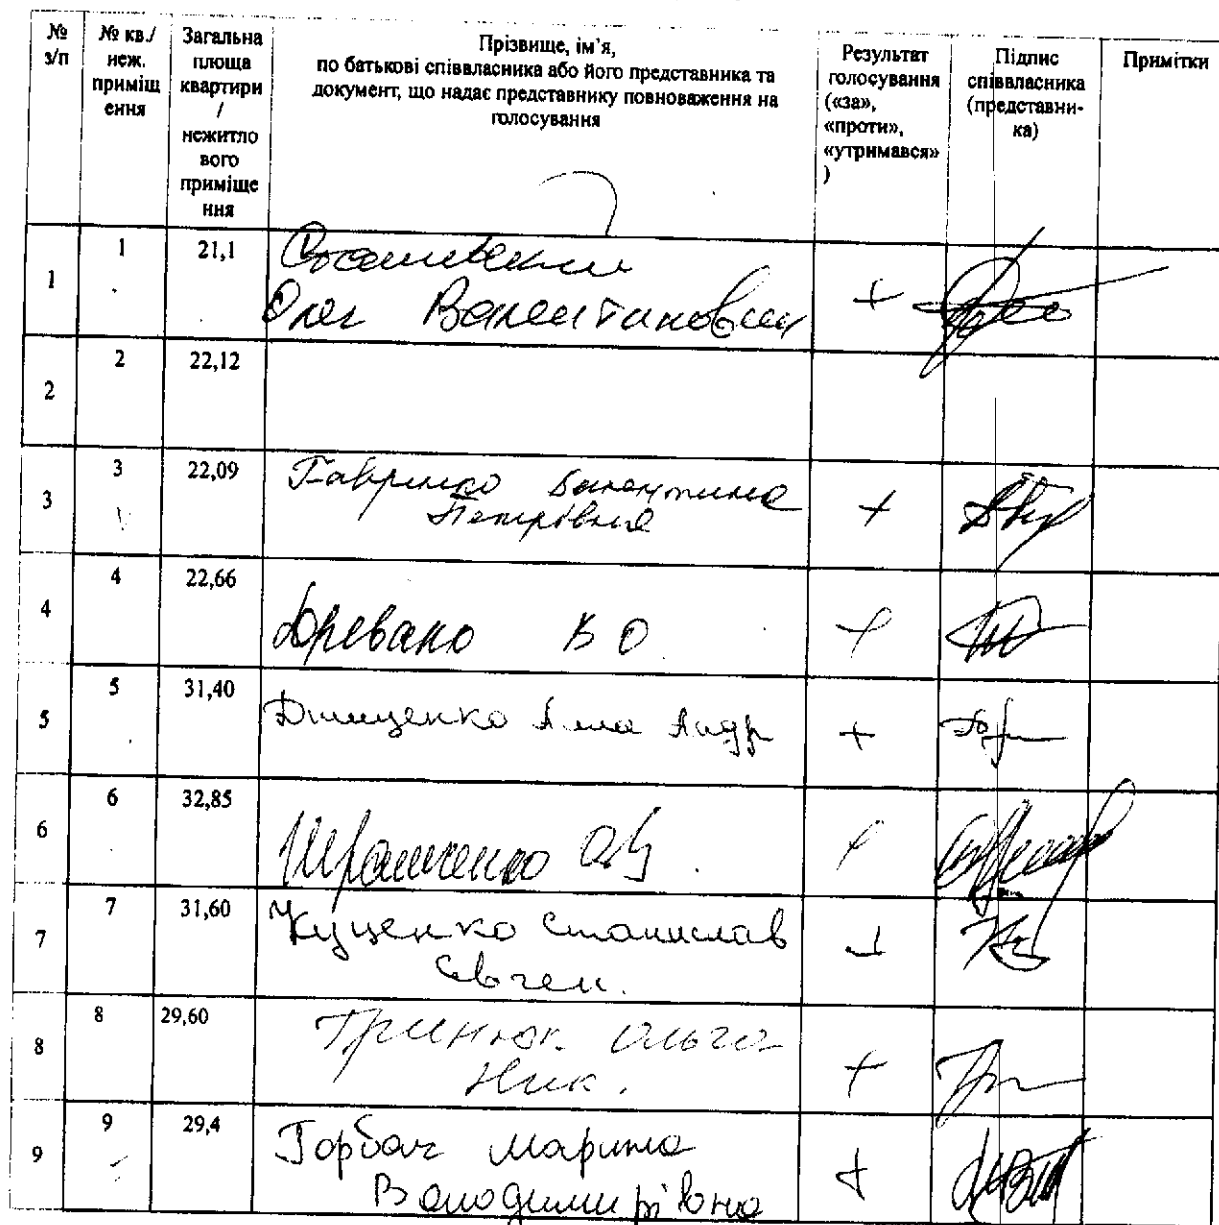 № з/п
№ кв./ неж. приміщ ення
Загальна площа квартири / нежитло вого приміще ння
Прізвище, ім'я,
по батькові співвласника або його представника та
документ, що надає представнику повноваження на
голосування
Результат голосування («за», «проти», «утримався» )
Підпис співвласника (представни- ка)
Примітки
1 1 21,1
Олег Валентинович +
2 2 22,12
3 3 22,09 Валентина
Петрівна +
4 4 22,66
Древано В О +
5 5 31,40 Дищенко Алла Андр +
6 6 32,85
+
7 7 31,60 Куценко Станислав
Євген. +
8 8 29,60 Тринюк Ольга
Ник. +
9 9 29,4 Горбач Марина
Володимирівна +